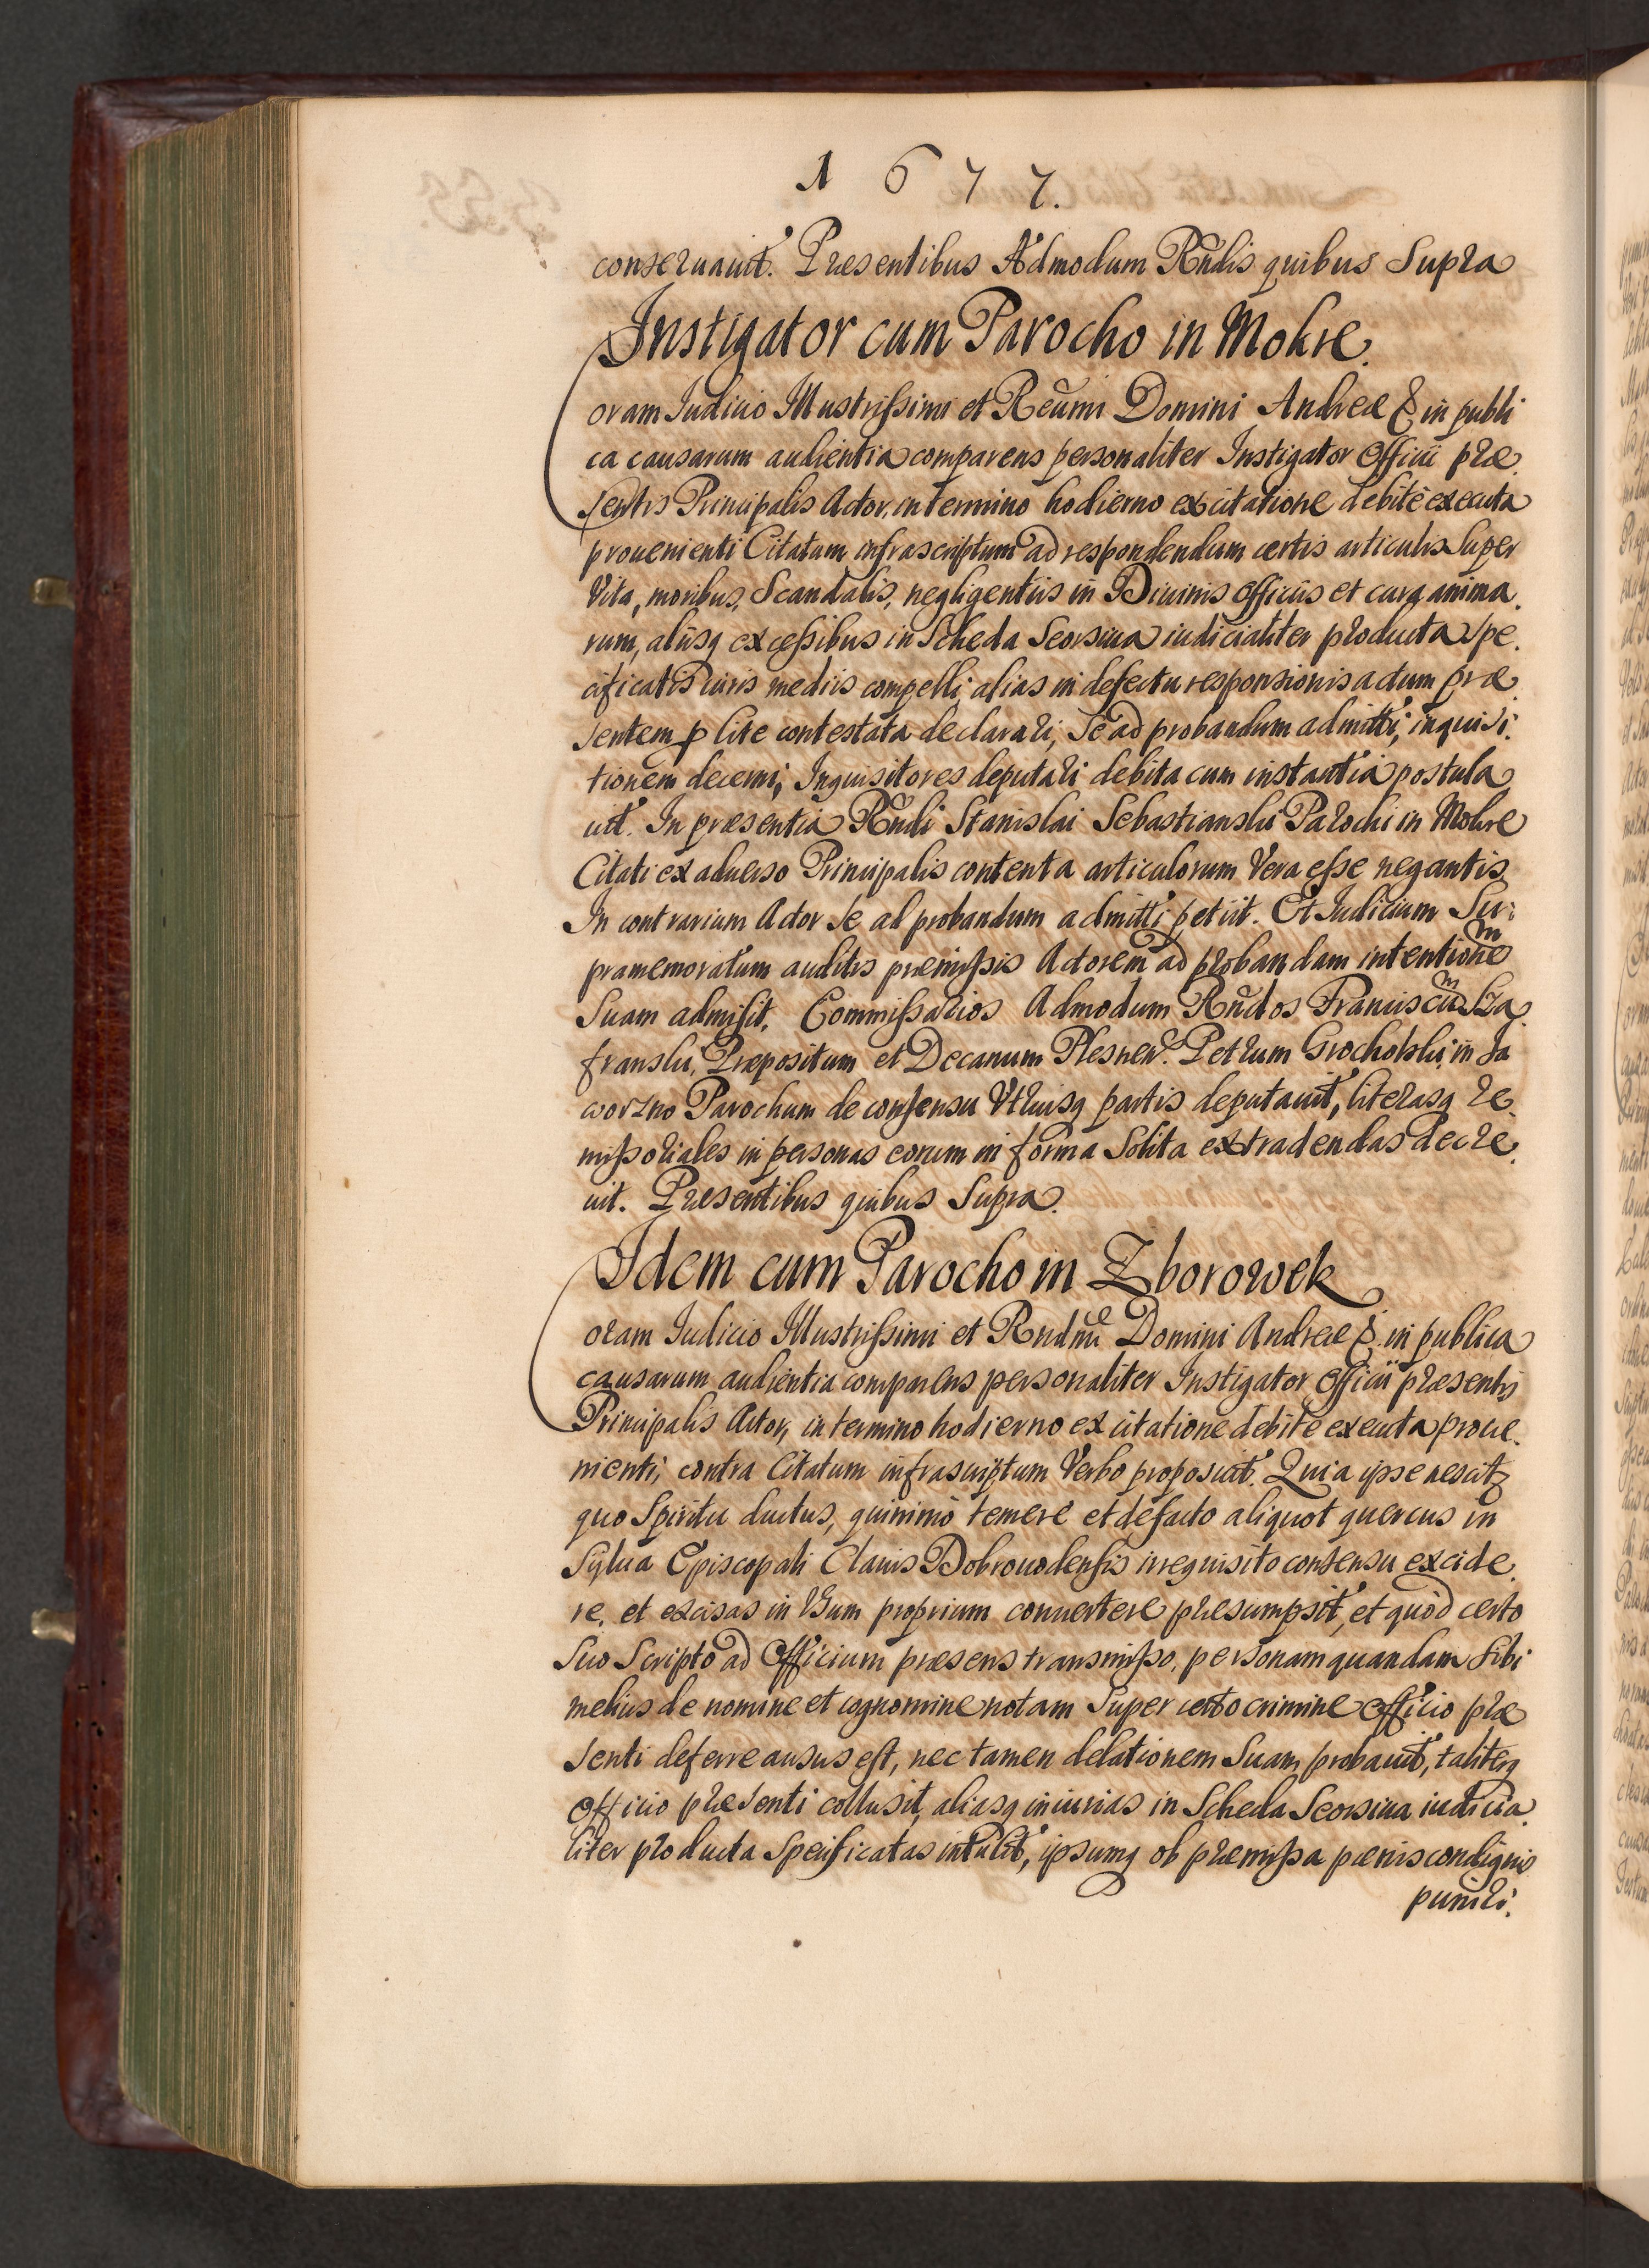 1677.
conseruauit. Præsentibus Admodum Rndis quibus Supra
Instigator cum Parocho in Mokre.
Coram Iudicio Illustrißimi et Reumi Domini Andreæ & in publi
ca causarum audientia comparens personaliter Instigator Officii præ
sentis Principalis Actor, in termino hodierno ex citatione debitè executa
prouenienti Citatum infrascriptum ad respondendum certis articulis Super
Vita, moribus, Scandalis, negligentiis in Diuinis Officiis et cura anima.
rum, aliisq excessibus in Scheda Seorsiua iudicialiter producta Spe.
cificatis iuris mediis compelli alias in defectu responsionis actum præ
sentem p lite contestata declarari, Se ad probandum admitti, inquisi.
tionem decerni, Inquisitores deputari debita cum instantia postula
uit. In præsentia Rndi Stanislai Sebastianski Parochi in Mokre
Citati ex aduerso Principalis contenta articulorum Vera esse negantis
In contrarium Actor Se ad probandum admitti petiit. Et Iudicium Su:
pramemoratum auditis præmißis Actorem ad probandam intentionem
Suam admisit. Commißarios Admodum Rndos Franciscum Sza
franski, Præpositum et Decanum Plesnen. Petrum Grocholski, in Ja
worzno Parochum de consensu Vtriusq partis deputauit, literasq re
mißoriales in personas eorum in forma Solita extradendas decre.
uit. Præsentibus quibus Supra.
Idem cum Parocho in Zborowek
Coram Iudicio Illustrißimi et Rndmi Domini Andreæ & in publica
causarum audientia comparens personaliter Instigator Officii præsentis
Principalis Actor, in termino hodierno ex citatione debitè executa proue.
nienti, contra Citatum infrascriptum Verbo proposuit. Quia ipse nescitz
quo Spiritu ductus, quinimò temere et defacto aliquot quercus in
Sylua Episcopali Clauis Dobrouodensis irrequisito consensu excide.
re, et excisas in Vsum proprium conuertere præsumpsit, et quòd certo
Suo Scripto ad Officium præsens transmißo, personam quandam Sibi
melius de nomine et cognomine notam Super certo crimine Officio præ
senti deferre ausus est, nec tamen delationem Suam probauit, taliterq
Officio præsenti collusit, aliasq iniurias in Scheda Seorsiua iudicia.
liter producta Specificatas intulit, ipsumq ob præmißa pœnis condignis
puniri.